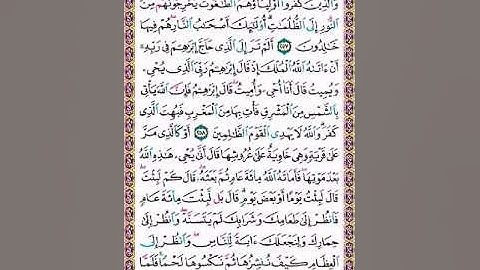 وَالَّذِينَ كَفَرُوٓا۟ أَوْلِيَآؤُهُمُ الطَّٰغُوتُ يُخْرِجُونَهُم مِّنَ
النُّورِ إِلَى الظُّلُمَٰتِ أُو۟لَٰٓئِكَ أَصْحَٰبُ النَّارِ هُمْ فِيهَا
خَٰلِدُونَ ٢٥٧ أَلَمْ تَرَ إِلَى الَّذِى حَآجَّ إِبْرَٰهِـمَ فِى رَبِّهِ
أَنْ ءَاتَىٰهُ اللَّهُ الْمُلْكَ إِذْ قَالَ إِبْرَٰهِـمُ رَبِّىَ الَّذِى يُحْىِ
وَيُمِيتُ قَالَ أَنَا أُحْىِ وَأُمِيتُ قَالَ إِبْرَٰهِـمُ فَإِنَّ اللَّهَ يَأْتِى
بِالشَّمْسِ مِنَ الْمَشْرِقِ فَأْتِ بِهَا مِنَ الْمَغْرِبِ فَبُهِتَ الَّذِى
كَفَرَ وَاللَّهُ لَا يَهْدِى الْقَوْمَ الظَّٰلِمِينَ ٢٥٨ أَوْ كَالَّذِى مَرَّ
عَلَىٰ قَرْيَةٍ وَهِىَ خَاوِيَةٌ عَلَىٰ عُرُوشِهَا قَالَ أَنَّىٰ يُحْىِ هَٰذِهِ اللَّهُ
بَعْدَ مَوْتِهَا فَأَمَاتَهُ اللَّهُ مِا۟ئَةَ عَامٍ ثُمَّ بَعَثَهُ قَالَ كَمْ لَبِثْتَ
قَالَ لَبِثْتُ يَوْمًا أَوْ بَعْضَ يَوْمٍ قَالَ بَل لَّبِثْتَ مِا۟ئَةَ عَامٍ
فَانظُرْ إِلَىٰ طَعَامِكَ وَشَرَابِكَ لَمْ يَتَسَنَّهْ وَانظُرْ إِلَىٰ
حِمَارِكَ وَلِنَجْعَلَكَ ءَايَةً لِّلنَّاسِ وَانظُرْ إِلَى
الْعِظَامِ كَيْفَ نُنشِرُهَا ثُمَّ نَكْسُوهَا لَحْمًا فَلَمَّا